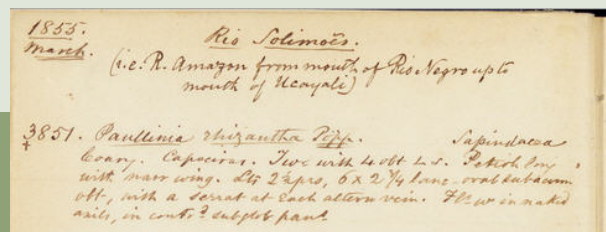 1855.
March.
Rio Solimoẽs.
(i.e. R. Amazon from mouth of Rio Negro up to
mouth of Ucayali)
3851. Paullinia rhizantha Pöpp. Sapindacea
Coary. Capoeiras. Twe with 4 obt ∠ s. Petiole long
with narr wing. Lts 2½ prs, 6 x 2¼ lanc-oval subacum
obt, with a serrat at each altern vein. Fls w in naked
axils, in contrd subglob pans